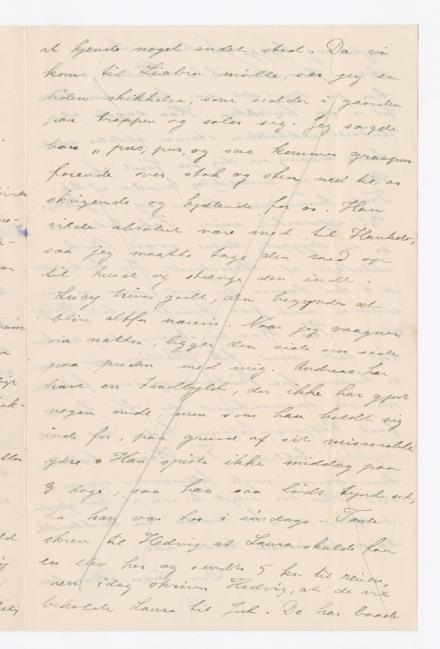 at kjende noget andet sted. Da vi
kom til Liabro mølle, ser jeg en
liden skikkelse, som sidder i gaarden
paa trappen og soler sig. Jeg sagde
bare „pus, pus, og saa kommer graapus
farende over stok og sten ned til os
skrigende og hjælende for os. Han
vilde absolut være med til Hauketo,
saa jeg maatte tage den med op
til huset og stænge den inde.
Lucy trives godt, den begynder at
blive altfor nærvis. Naar jeg vaagner
om natten, ligger den side om side
paa puden med mig. Andreas har
havt en tandbyld, der ikke har gjort
nogen ondt, men som han holdt sig
inde for, paa grund af sit miserable
ydre. Han spiste ikke middag paa
3 dage, saa han saa lidt tynd ud,
da han var her i søndags. Tante
skrev til Hedvig at Laura skulde faa
en elev her og sendte 5 kr. til reisen,
men idag skriver Hedvig, at de vil
beholde Laura til Jul. De har baade